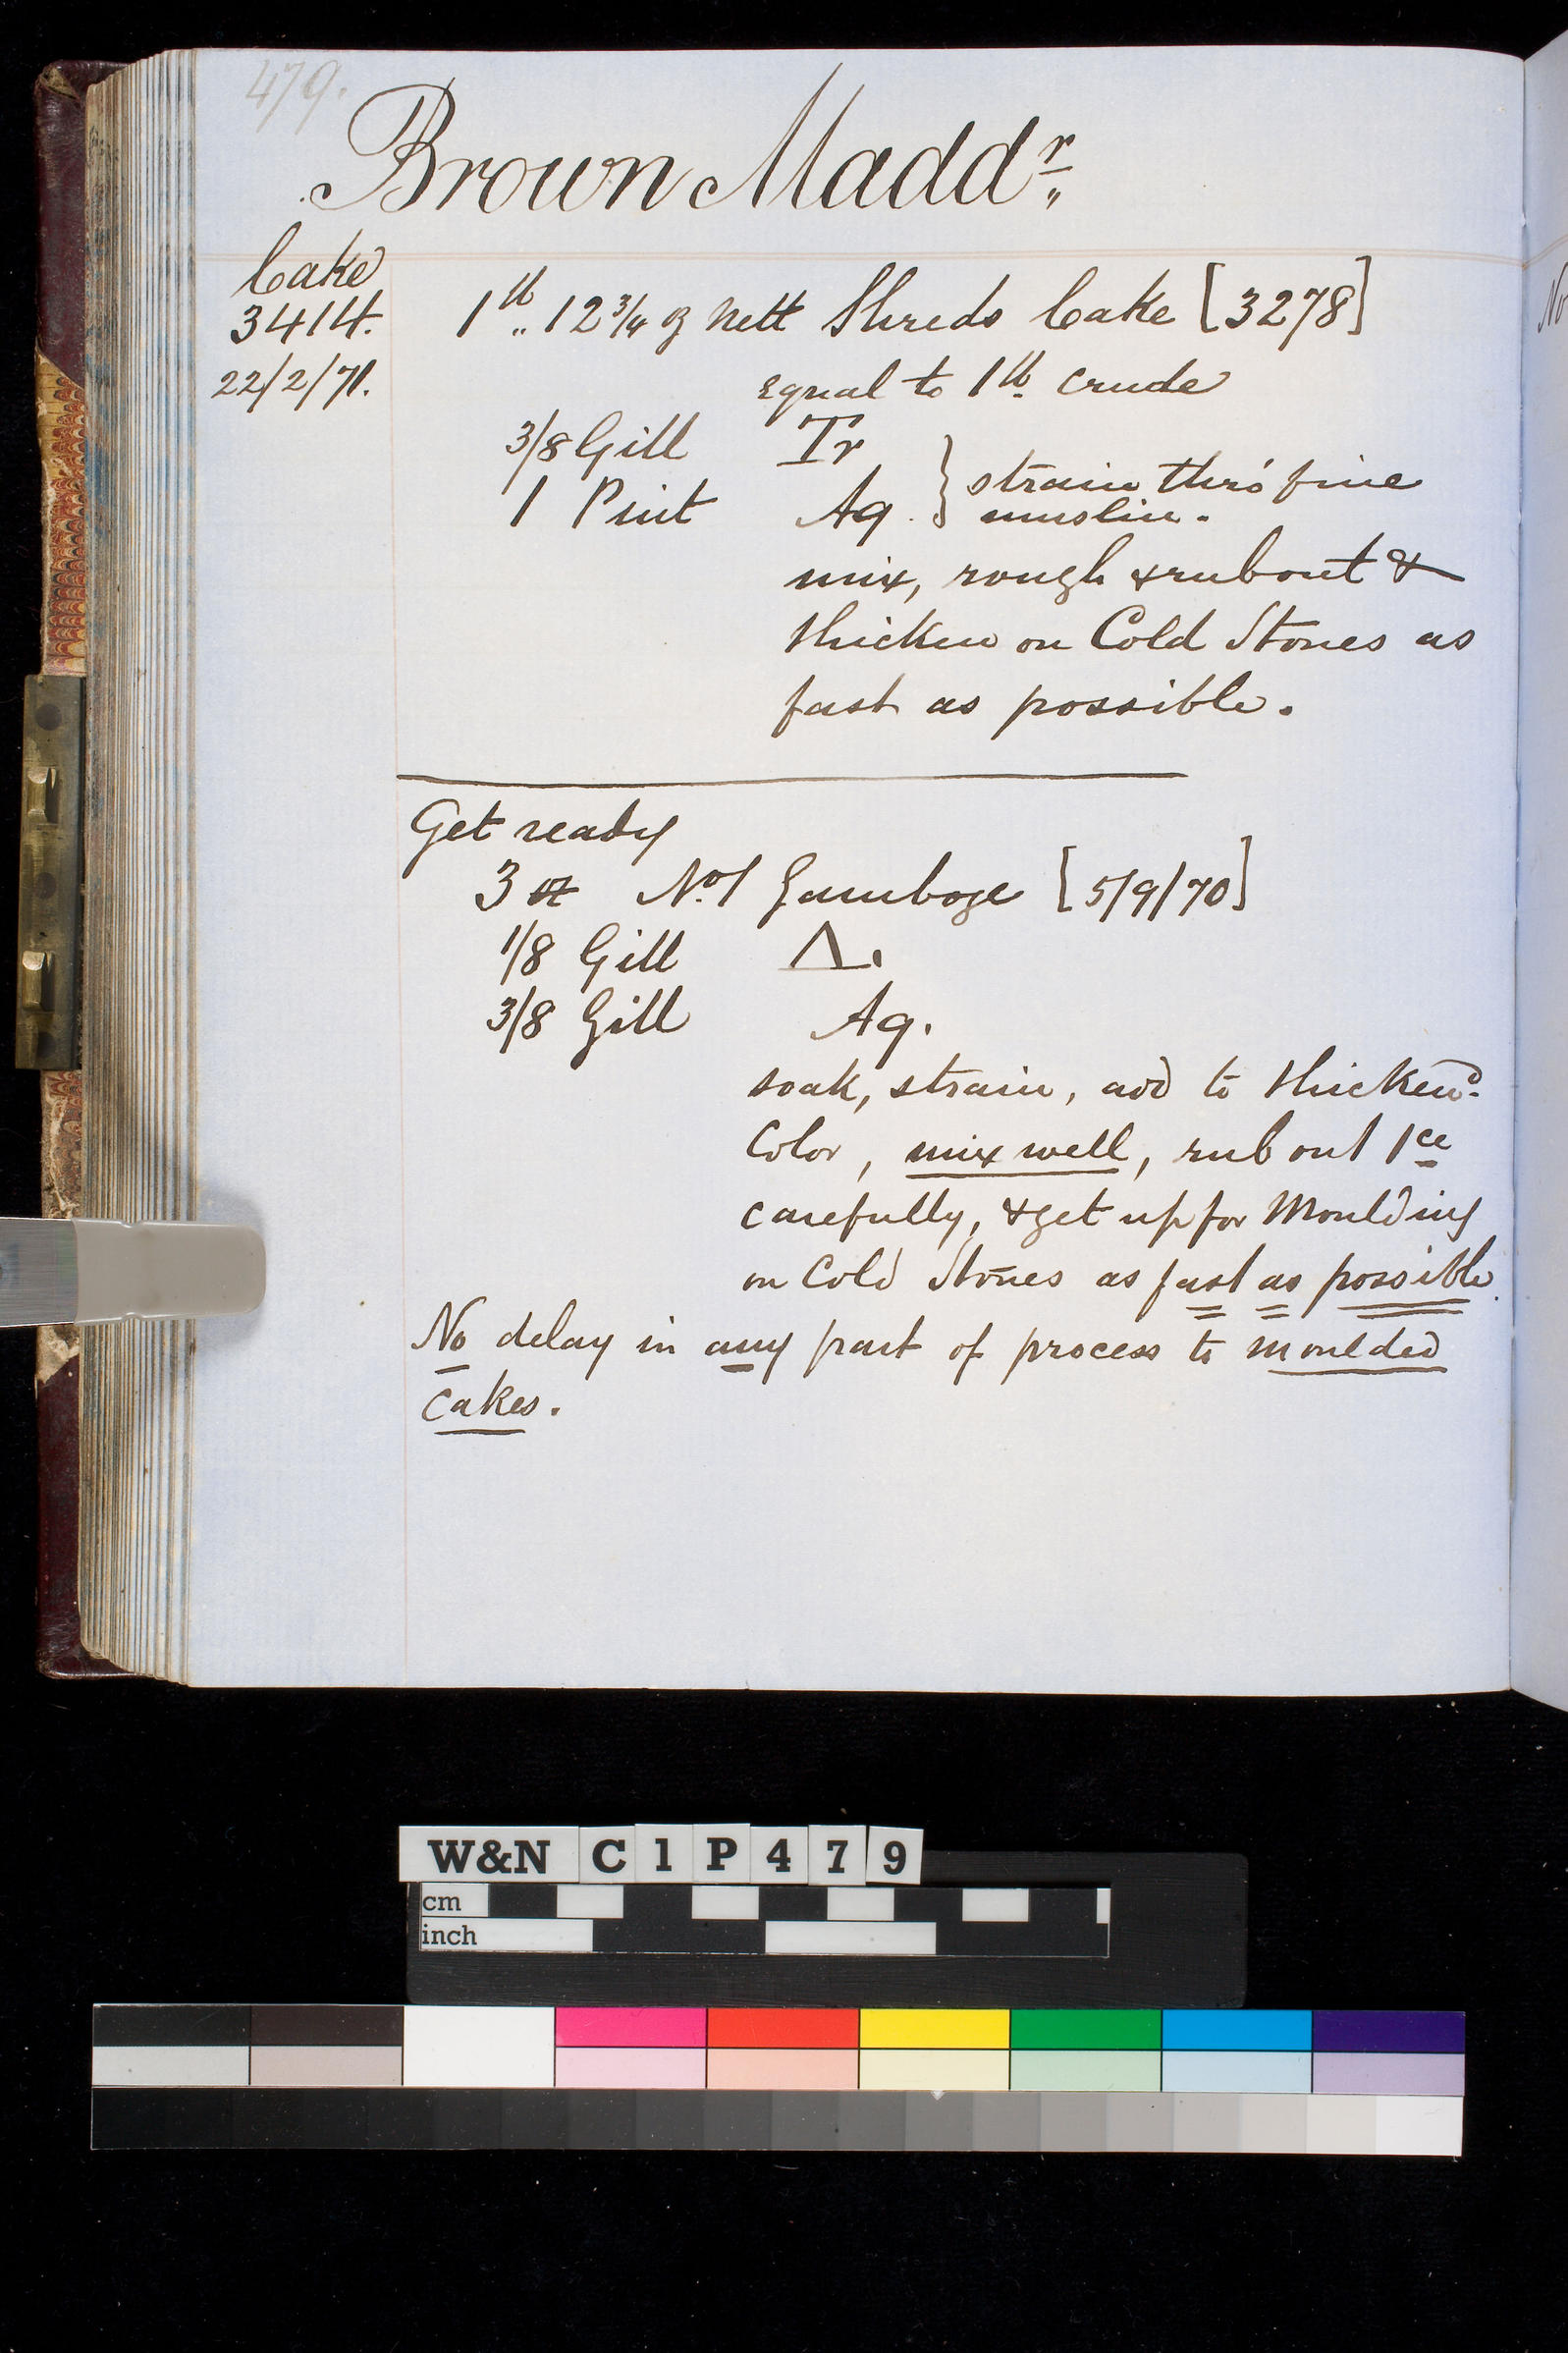 479.
Brown Maddr
Cake
3414.
22/2/71.
1 lb .. 12 3/4 oz nett Shreds Cake [3278]
equal to 1 lb crude
3/8 Gill Tr
1 Pint Aq. } strain thro' fine
muslin.
mix, rough & rub out &
thicken on Cold Stones as
fast as possible.
Get ready
3 oz No. 1 Gamboge [5/9/70]
1/8 Gill Λ.
3/8 Gill Aq.
soak, strain, add to thickend
Color, mix well, rub out 1ce
carefully, & get up for Moulding
on Cold Stones as fast as possible.
No delay in any part of process to moulded
cakes.
No
W&N C1P479
cm
inch